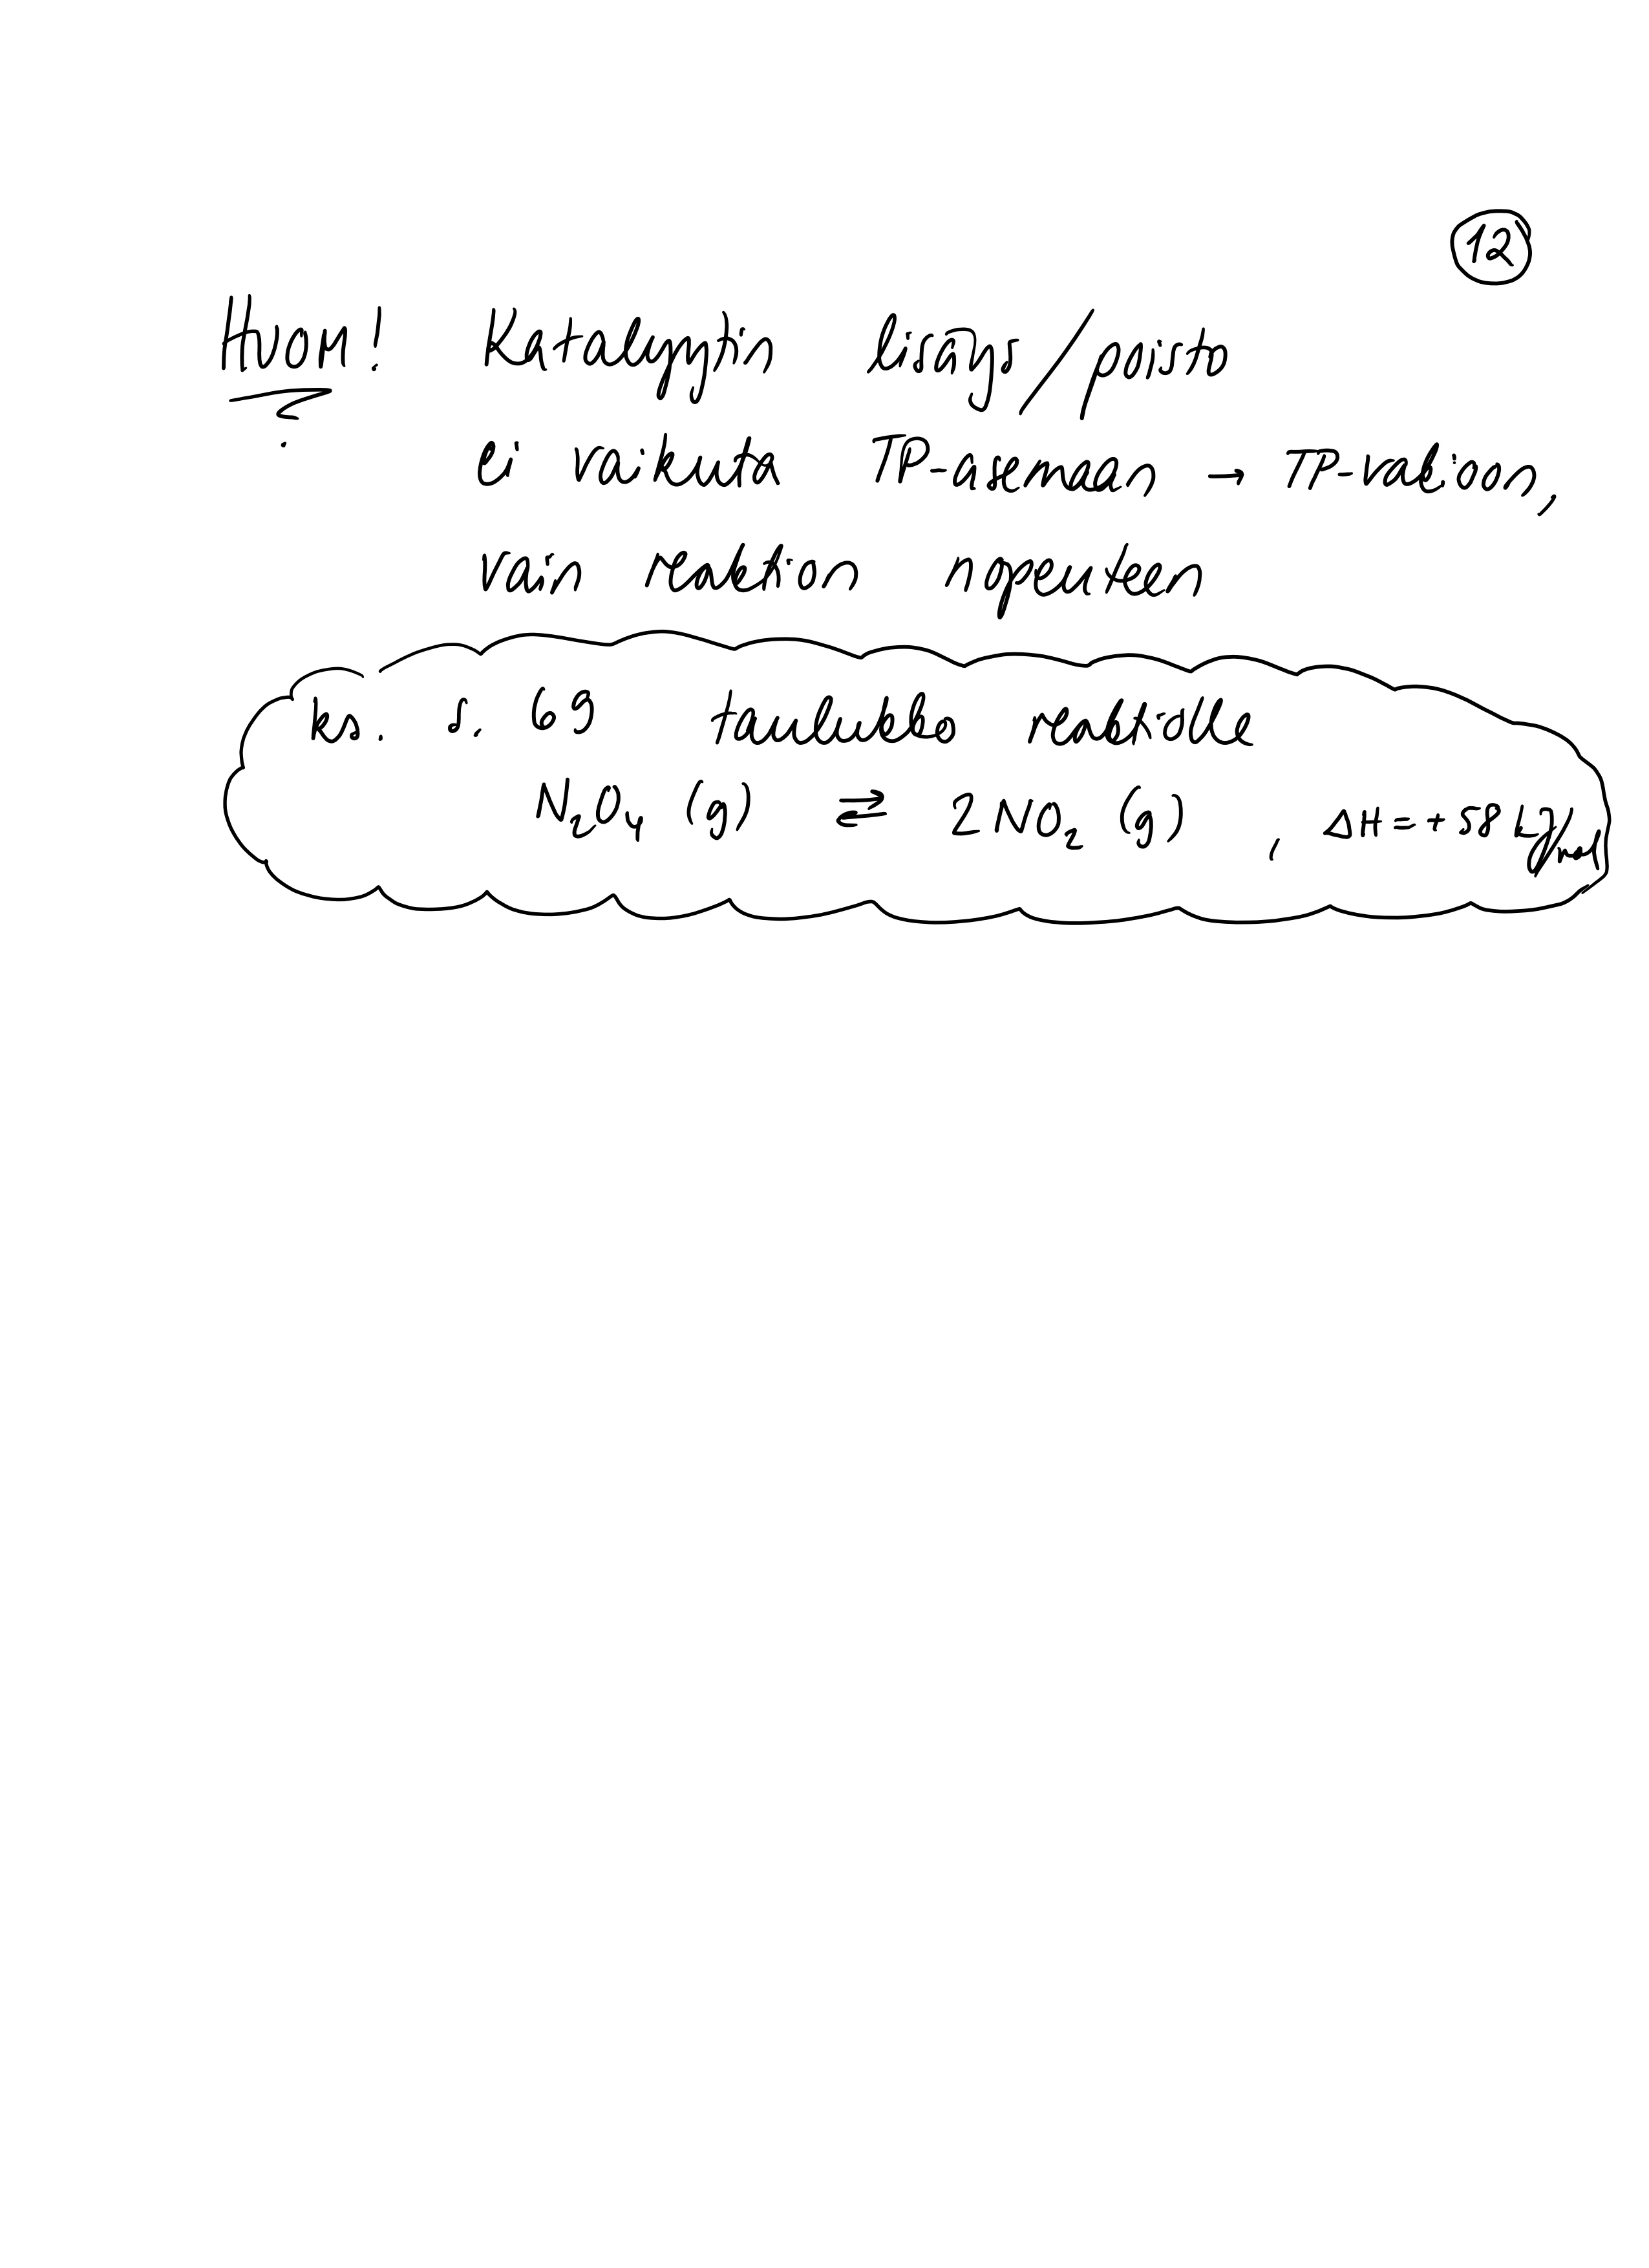 12
Huom! Katalyytin lisäys/poisto
ei vaikuta TP-asemaan → TP-vakioon,
vain reaktion nopeuteen
ks. s. 69 taulukko reaktiolle
N₂O₄ (g) ⇌ 2 NO₂ (g) , ΔH = +58 kJ/mol